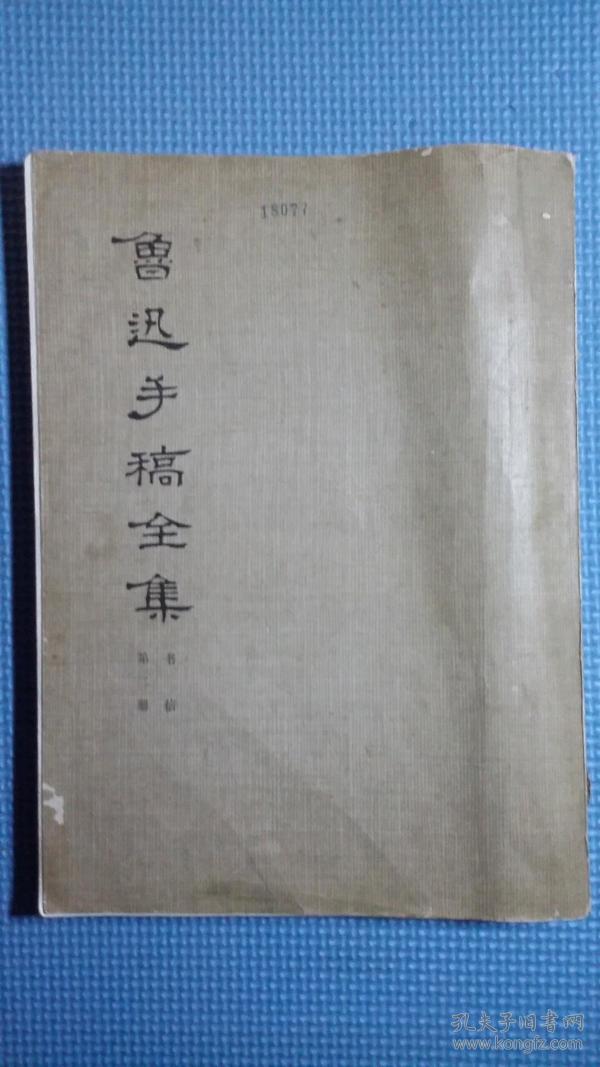 18077
魯迅手稿全集
书信
第二册
孔夫子旧书网
www.kongfz.com